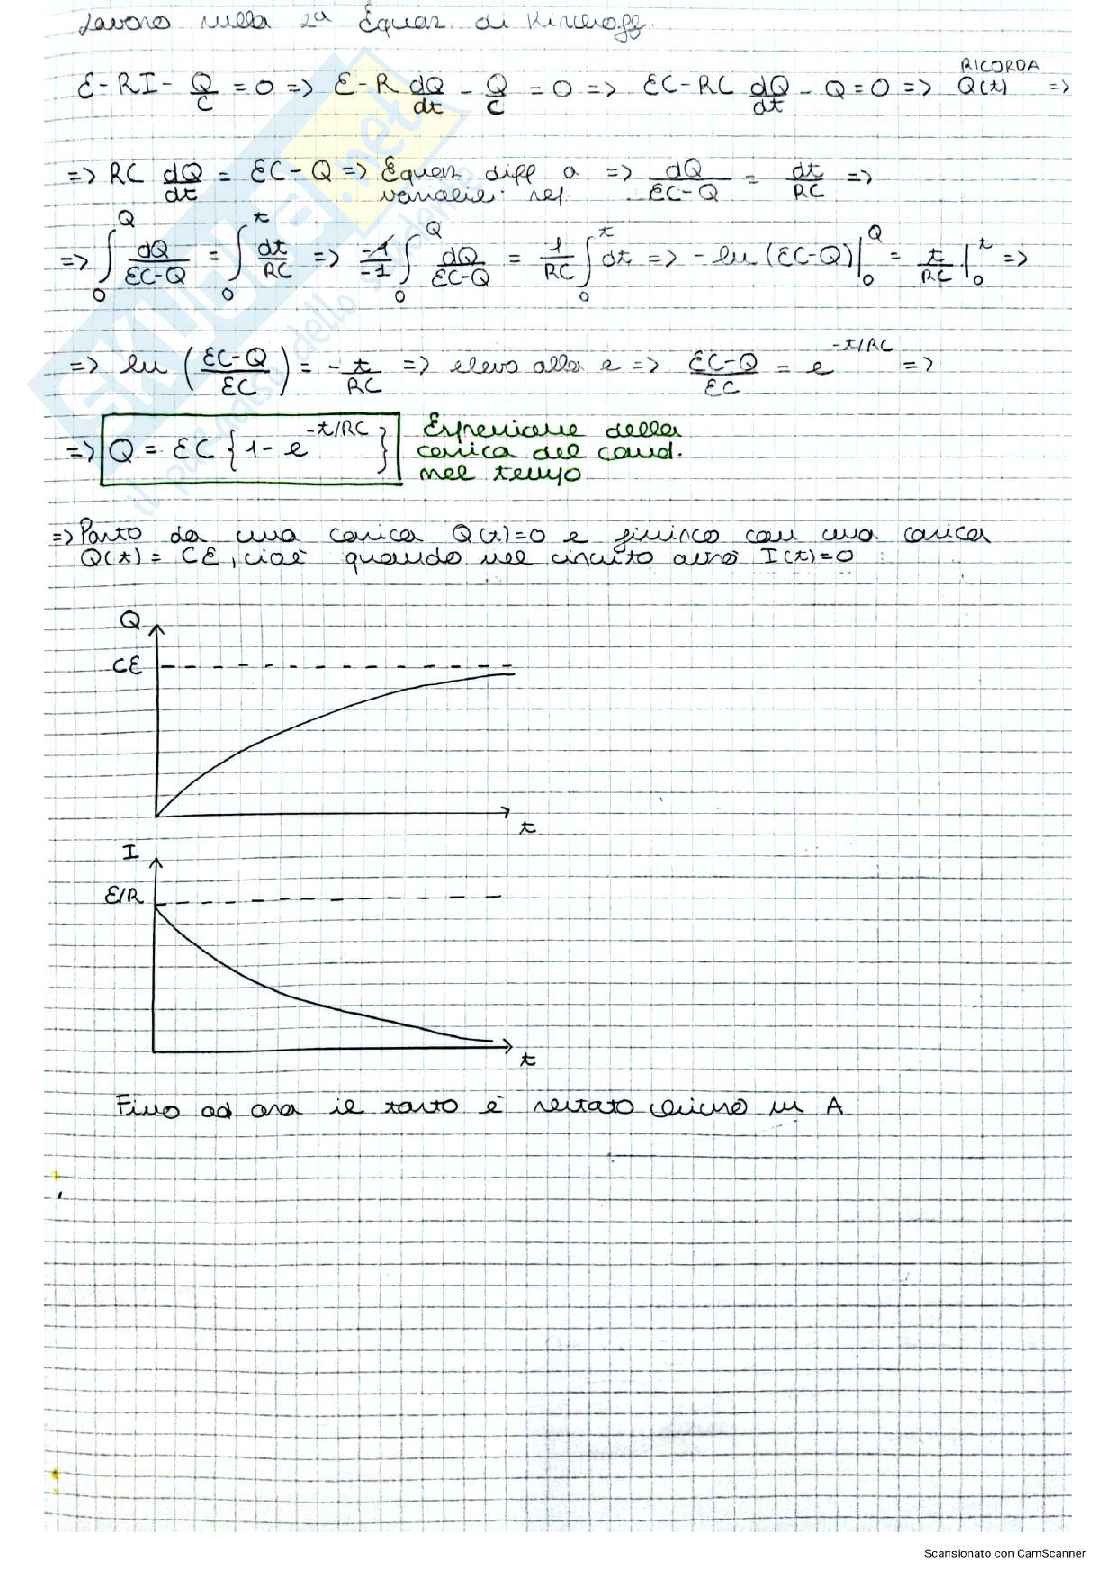 Lavoro sulla 2ª Equaz. di Kirchoff
RICORDA
ε-RI-Q/C=0 => ε-R dQ/dt - Q/C = 0 => εC-RC dQ/dt - Q=0 => Q(t) =>
=> RC dQ/dt = εC-Q => Equaz diff a variabili sep. => dQ/(εC-Q) = dt/RC =>
=> ∫₀^Q dQ/(εC-Q) = ∫₀^t dt/RC => -1/-1 ∫₀^Q dQ/(εC-Q) = 1/RC ∫₀^t dt => -ln(εC-Q)|₀^Q = t/RC|₀^t =>
=> ln((εC-Q)/εC) = -t/RC => elevo alla e => (εC-Q)/εC = e^(-t/RC) =>
=> Q = εC{1-e^(-t/RC)} Espressione della
carica del cond.
nel tempo
=> Parto da una carica Q(t)=0 e finisco con una carica
Q(t) = Cε, cioè quando nel circuito avrò I(t)=0
Q
Cε
t
I
ε/R
t
Fino ad ora il tasto è restato chiuso in A
SKUOLA.net
il paradiso dello studente
Scansionato con CamScanner